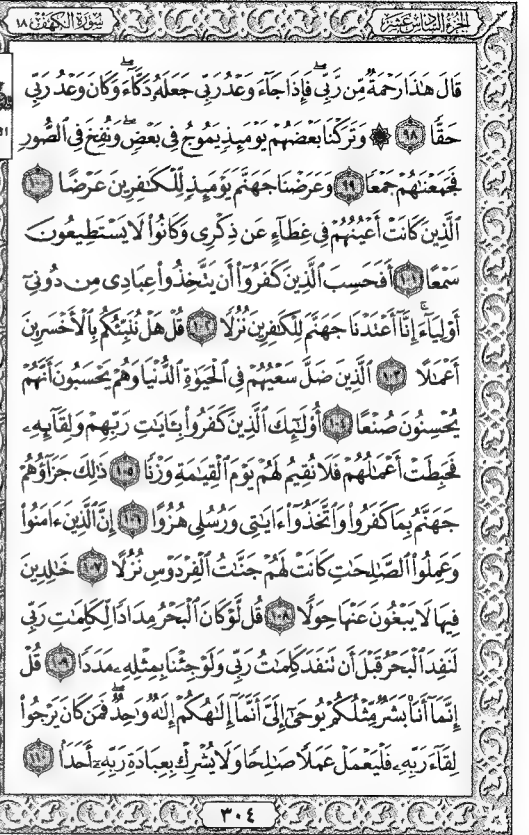 الجزء السادس عشر سورة الكهف ١٨
قَالَ هَٰذَا رَحْمَةٌ مِّن رَّبِّي ۖ فَإِذَا جَآءَ وَعْدُ رَبِّي جَعَلَهُۥ دَكَّآءَ ۖ وَكَانَ وَعْدُ رَبِّي
حَقًّا ٩٨ ۞ وَتَرَكْنَا بَعْضَهُمْ يَوْمَئِذٍ يَمُوجُ فِي بَعْضٍ ۖ وَنُفِخَ فِي ٱلصُّورِ
فَجَمَعْنَٰهُمْ جَمْعًا ٩٩ وَعَرَضْنَا جَهَنَّمَ يَوْمَئِذٍ لِّلْكَٰفِرِينَ عَرْضًا ١٠٠
ٱلَّذِينَ كَانَتْ أَعْيُنُهُمْ فِي غِطَآءٍ عَن ذِكْرِي وَكَانُوا۟ لَا يَسْتَطِيعُونَ
سَمْعًا ١٠١ أَفَحَسِبَ ٱلَّذِينَ كَفَرُوٓا۟ أَن يَتَّخِذُوا۟ عِبَادِي مِن دُونِيٓ
أَوْلِيَآءَ ۚ إِنَّآ أَعْتَدْنَا جَهَنَّمَ لِلْكَٰفِرِينَ نُزُلًا ١٠٢ قُلْ هَلْ نُنَبِّئُكُم بِٱلْأَخْسَرِينَ
أَعْمَٰلًا ١٠٣ ٱلَّذِينَ ضَلَّ سَعْيُهُمْ فِي ٱلْحَيَوٰةِ ٱلدُّنْيَا وَهُمْ يَحْسَبُونَ أَنَّهُمْ
يُحْسِنُونَ صُنْعًا ١٠٤ أُو۟لَٰٓئِكَ ٱلَّذِينَ كَفَرُوا۟ بِـَٔايَٰتِ رَبِّهِمْ وَلِقَآئِهِۦ
فَحَبِطَتْ أَعْمَٰلُهُمْ فَلَا نُقِيمُ لَهُمْ يَوْمَ ٱلْقِيَٰمَةِ وَزْنًا ١٠٥ ذَٰلِكَ جَزَآؤُهُمْ
جَهَنَّمُ بِمَا كَفَرُوا۟ وَٱتَّخَذُوٓا۟ ءَايَٰتِي وَرُسُلِي هُزُوًا ١٠٦ إِنَّ ٱلَّذِينَ ءَامَنُوا۟
وَعَمِلُوا۟ ٱلصَّٰلِحَٰتِ كَانَتْ لَهُمْ جَنَّٰتُ ٱلْفِرْدَوْسِ نُزُلًا ١٠٧ خَٰلِدِينَ
فِيهَا لَا يَبْغُونَ عَنْهَا حِوَلًا ١٠٨ قُل لَّوْ كَانَ ٱلْبَحْرُ مِدَادًا لِّكَلِمَٰتِ رَبِّي
لَنَفِدَ ٱلْبَحْرُ قَبْلَ أَن تَنفَدَ كَلِمَٰتُ رَبِّي وَلَوْ جِئْنَا بِمِثْلِهِۦ مَدَدًا ١٠٩ قُلْ
إِنَّمَآ أَنَا۠ بَشَرٌ مِّثْلُكُمْ يُوحَىٰٓ إِلَيَّ أَنَّمَآ إِلَٰهُكُمْ إِلَٰهٌ وَٰحِدٌ ۖ فَمَن كَانَ يَرْجُوا۟
لِقَآءَ رَبِّهِۦ فَلْيَعْمَلْ عَمَلًا صَٰلِحًا وَلَا يُشْرِكْ بِعِبَادَةِ رَبِّهِۦٓ أَحَدًۢا ١١٠
٣٠٤